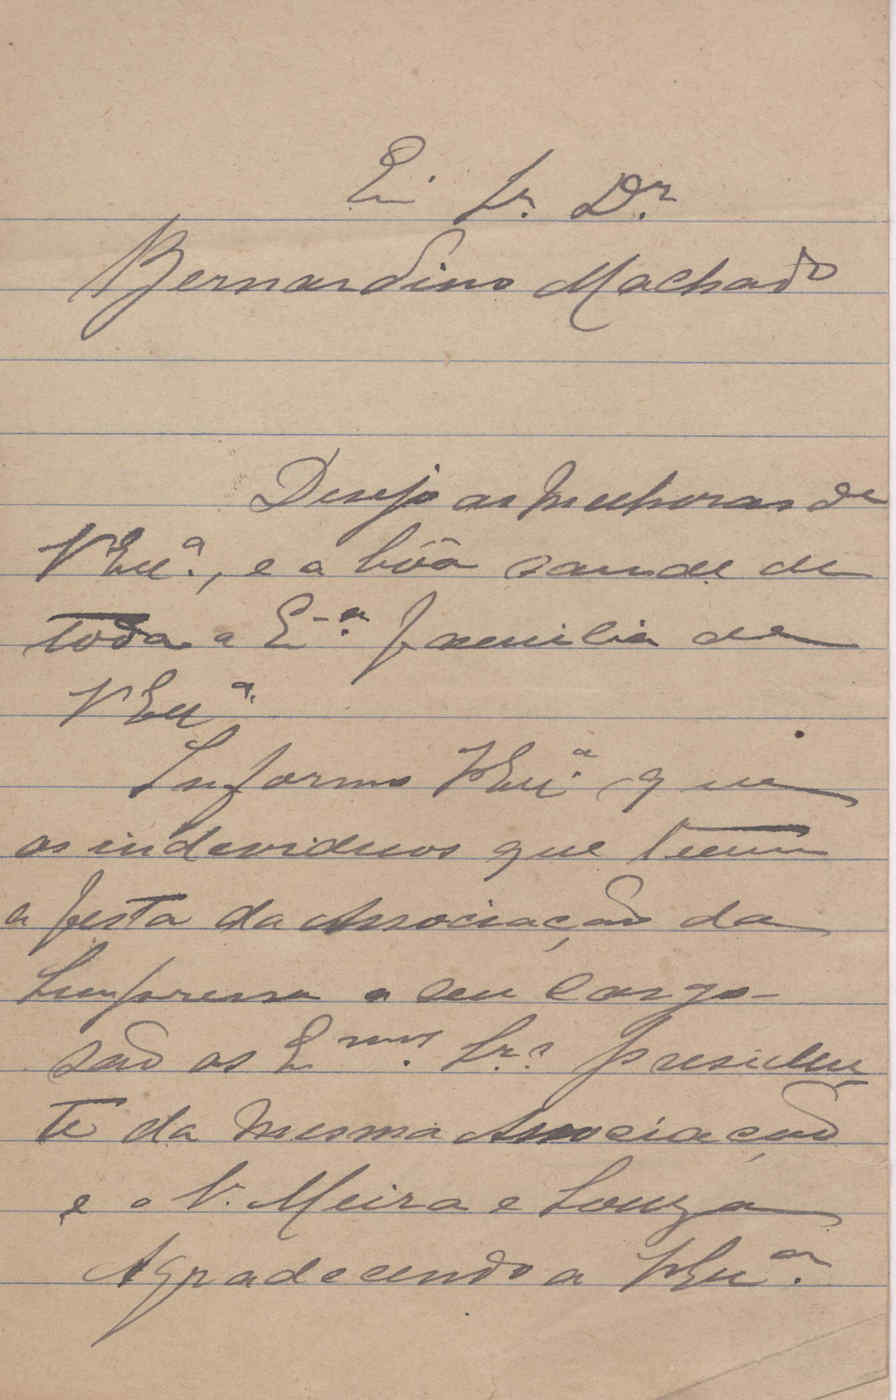 Ex. Sr. Dr.
Bernardino Machado
Desejo as melhoras de
V Exª., e a bôa saude de
toda a E.ª familia de
V Exª.
Informo V Exª. que
os individuos que teem
a festa da Associação da
Imprensa a seu cargo
são os E.mos Sr.s presiden
te da mesma Associação
e o V. Meira e Souza
Agradecendo a V Exª.